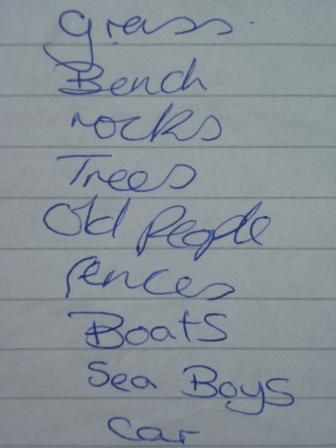 grass.
Bench
rocks
Trees
Old People
fences
Boats
Sea Boys
car